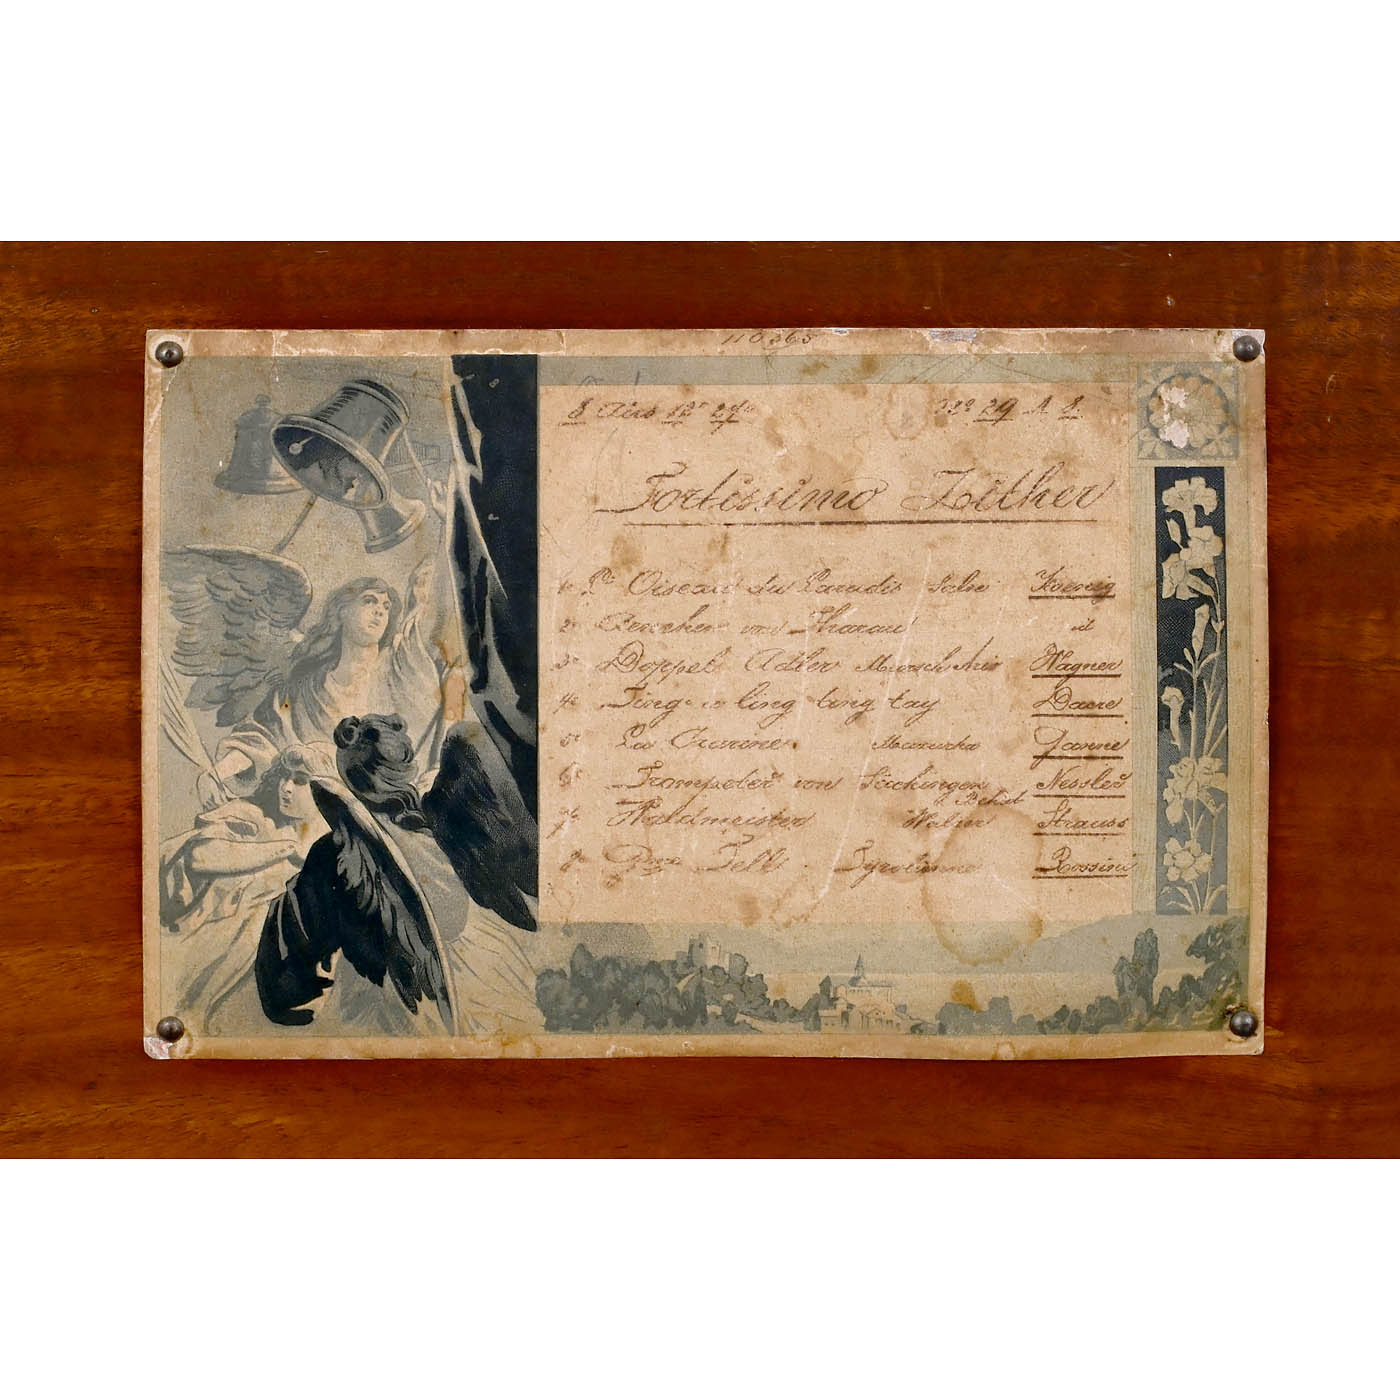 110365
8 Airs 12" 24c No 29 A 8.
Fortissimo Zither
1o L' Oiseau du Paradis Koenig
2o von Tharau id
3o Doppel Adler Marsch Wagner
4o ling ting tay Dacre
5o La Czarine Mazurka Ganne
6o Trompeter von Säckingen Nessler
7o Waldmeister Walzer Strauss
8o Gme Tell Tyrolienne Rossini